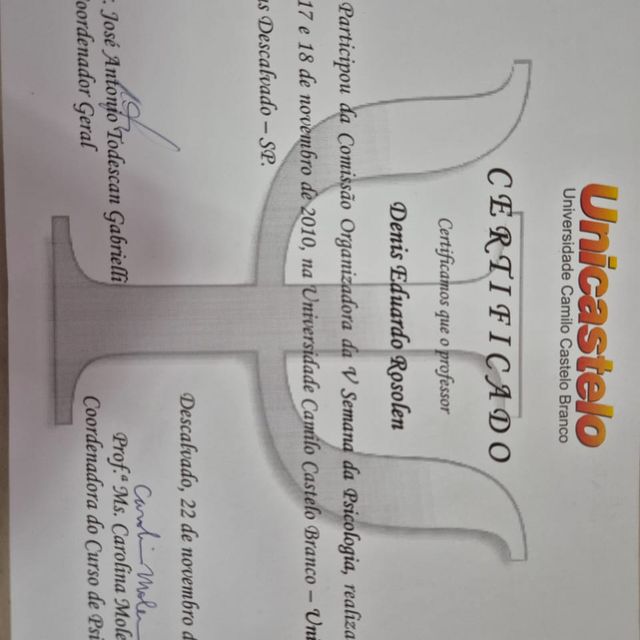 Unicastelo
Universidade Camilo Castelo Branco
CERTIFICADO
Certificamos que o professor
Denis Eduardo Rosolen
Participou da Comissão Organizadora da V Semana da Psicologia, realiza
17 e 18 de novembro de 2010, na Universidade Camilo Castelo Branco – Uni
us Descalvado – SP.
Descalvado, 22 de novembro d
. José Antonio Todescan Gabrielli
Coordenador Geral
Prof.ª Ms. Carolina Mole
Coordenadora do Curso de Psi